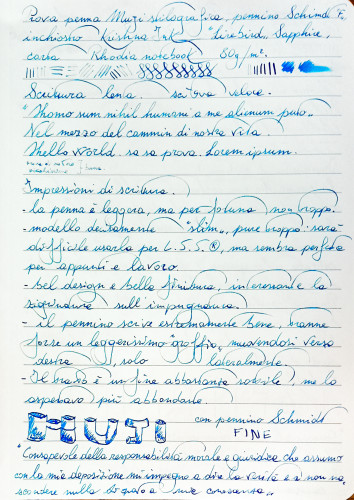 Prova penna Muji stilografica, pennino Schimdt F,
inchiostro Krishna Ink "Firebird, Sapphire,
carta Rhodia notebook 80g/m².
Scrittura lenta. scrittura veloce.
"Homo sum nihil humani a me alienum puto„
Nel mezzo del cammin di nostra vita.
Hello World. sa sa prova. Lorem ipsum.
Impressioni di scrittura.
- la penna è leggera, ma per fortuna non troppo.
- modello decisamente "slim„, pure troppo: sarà
difficile usarla per L.S.S.®, ma sembra perfetta
per appunti e lavoro.
- bel design e belle finiture, interessante la
zigrinatura sull'impugnatura.
- il pennino scrive estremamente bene, tranne
forse un leggerissimo graffio, muovendosi verso
destra, solo lateralmente.
- Il tratto è un fine abbastanza sottile, me lo
aspettavo più abbondante.
MUJI con pennino Schmidt
FINE
"Consapevole della responsabilità morale e giuridica che assumo
con la mia deposizione mi impegno a dire la verità e a non na-
scondere nulla di quanto a mia conoscenza„